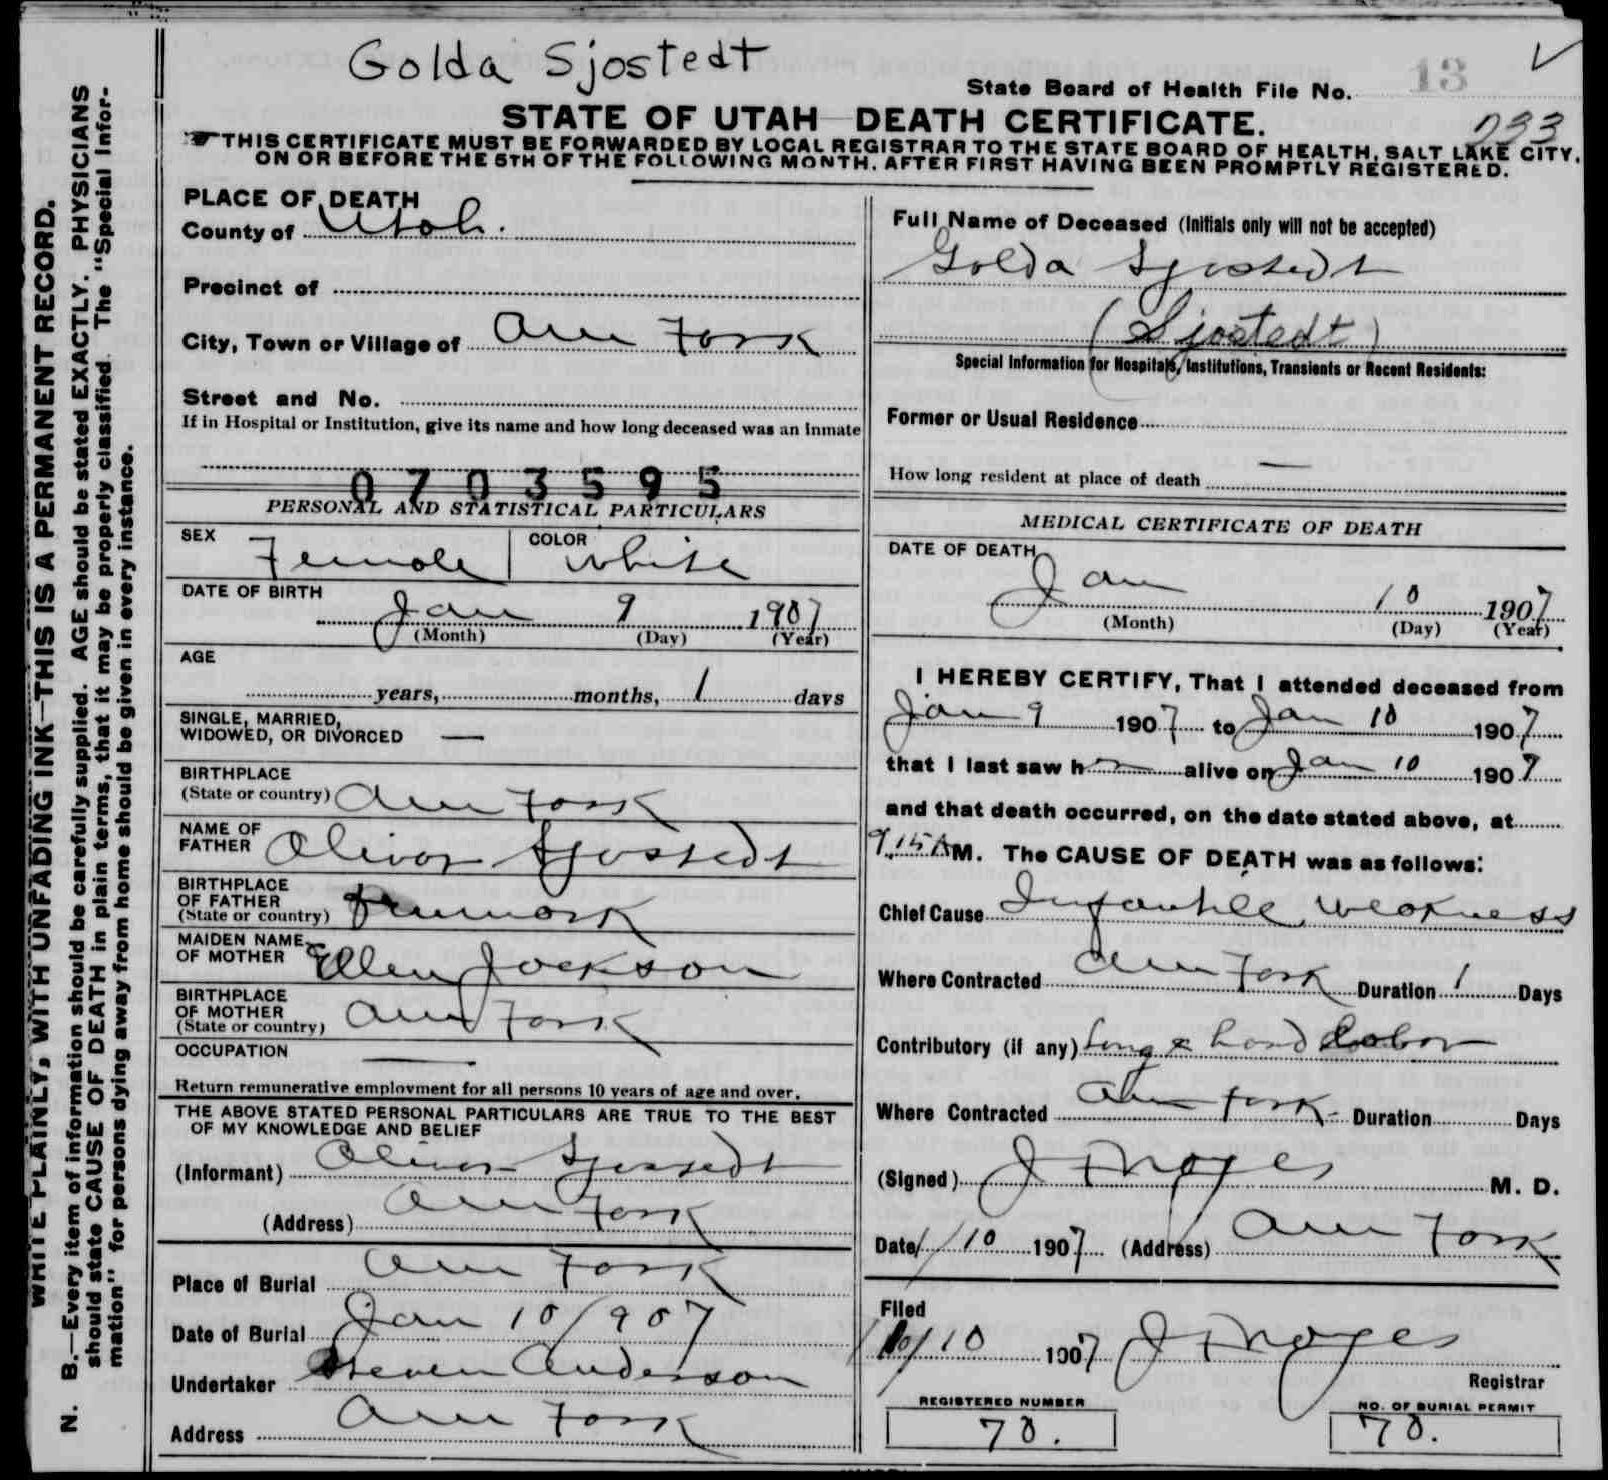 Golda Sjostedt
State Board of Health File No. 13
STATE OF UTAH DEATH CERTIFICATE.
233
THIS CERTIFICATE MUST BE FORWARDED BY LOCAL REGISTRAR TO THE STATE BOARD OF HEALTH, SALT LAKE CITY,
ON OR BEFORE THE 5TH OF THE FOLLOWING MONTH, AFTER FIRST HAVING BEEN PROMPTLY REGISTERED.
WRITE PLAINLY, WITH UNFADING INK—THIS IS A PERMANENT RECORD.
N. B.—Every item of information should be carefully supplied. AGE should be stated EXACTLY. PHYSICIANS
should state CAUSE OF DEATH in plain terms, that it may be properly classified. The "Special Infor-
mation" for persons dying away from home should be given in every instance.
PLACE OF DEATH
County of Utah.
Precinct of
City, Town or Village of Am Fork
Street and No.
If in Hospital or Institution, give its name and how long deceased was an inmate
0703595
PERSONAL AND STATISTICAL PARTICULARS
SEX Female COLOR White
DATE OF BIRTH
Jan 9 1907
(Month) (Day) (Year)
AGE
years, months, 1 days
SINGLE, MARRIED,
WIDOWED, OR DIVORCED —
BIRTHPLACE
(State or country) Am Fork
NAME OF
FATHER Oliver Sjostedt
BIRTHPLACE
OF FATHER
(State or country) Denmark
MAIDEN NAME
OF MOTHER Ellen Jackson
BIRTHPLACE
OF MOTHER
(State or country) Am Fork
OCCUPATION —
Return remunerative employment for all persons 10 years of age and over.
THE ABOVE STATED PERSONAL PARTICULARS ARE TRUE TO THE BEST
OF MY KNOWLEDGE AND BELIEF
(Informant) Oliver Sjostedt
(Address) Am Fork
Place of Burial Am Fork
Date of Burial Jan 10/907
Undertaker Steven Anderson
Address Am Fork
Full Name of Deceased (Initials only will not be accepted)
Golda Sjostedt
(Sjostedt)
Special Information for Hospitals, Institutions, Transients or Recent Residents:
Former or Usual Residence
How long resident at place of death —
MEDICAL CERTIFICATE OF DEATH
DATE OF DEATH
Jan 10 1907
(Month) (Day) (Year)
I HEREBY CERTIFY, That I attended deceased from
Jan 9 1907 to Jan 10 1907
that I last saw her alive on Jan 10 1907
and that death occurred, on the date stated above, at
9.15 AM. The CAUSE OF DEATH was as follows:
Chief Cause Infantile weakness
Where Contracted Am Fork Duration 1 Days
Contributory (if any) Long & hard labor
Where Contracted Am Fork. Duration Days
(Signed) J F Noyes M. D.
Date 1/10 1907 (Address) Am Fork
Filed
1/10 1907 J F Noyes
Registrar
REGISTERED NUMBER
78.
NO. OF BURIAL PERMIT
78.